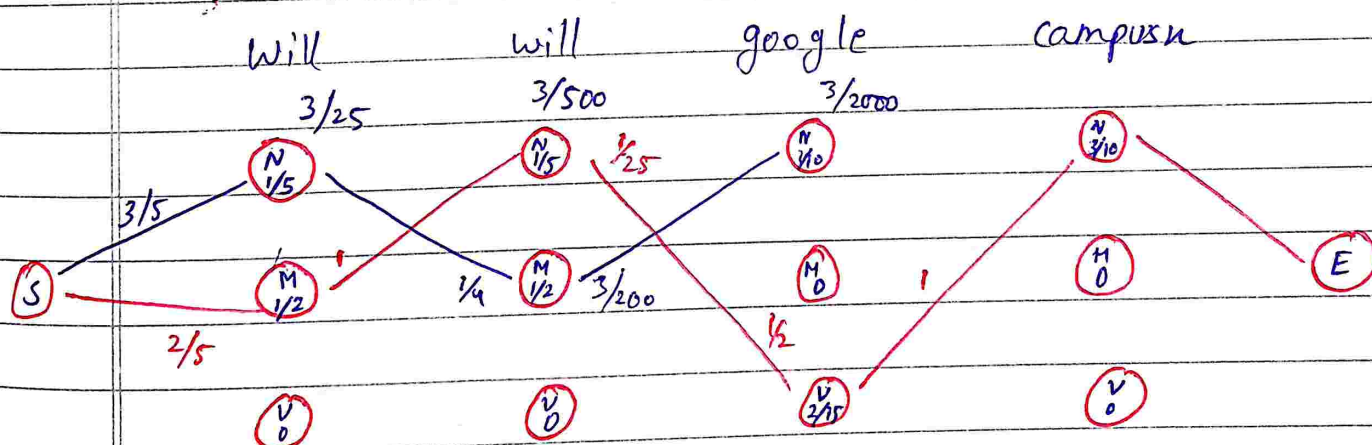 Will will google campusn
3/25 3/500 3/2000
N 1/5 N 1/5 1/25 N 3/10 N 3/10
3/5
S M 1/2 1 1/4 M 1/2 3/200 M 0 1 M 0 E
2/5 1/2
V 0 V 0 V 2/15 V 0